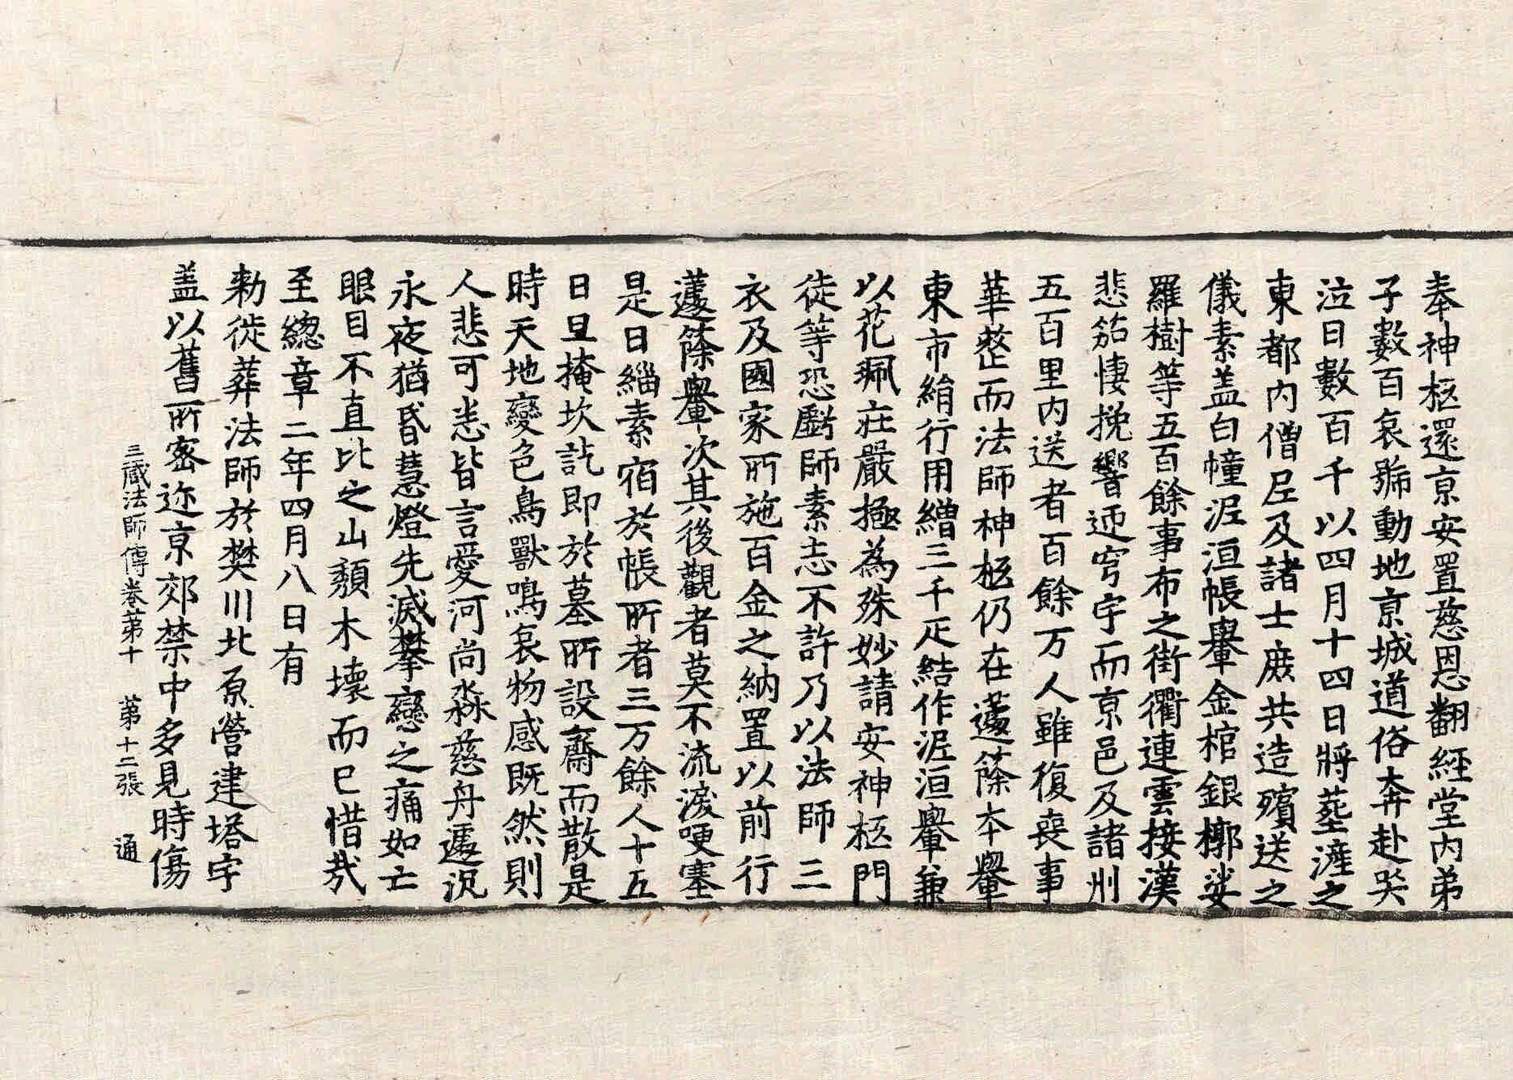 奉神柩還京安置慈恩翻經堂内弟
子數百哀號動地京城道俗奔赴哭
泣日數百千以四月十四日將葬滻之
東都内僧尼及諸士庶共造殯送之
儀素盖白幢泥洹帳轝金棺銀槨娑
羅樹等五百餘事布之街衢連雲接漢
悲笳悽挽響迊穹宇而京邑及諸州
五百里内送者百餘万人雖復喪事
華整而法師神柩仍在籧篨本轝
東市絹行用繒三千疋結作泥洹轝兼
以花珮莊嚴極為殊妙請安神柩門
徒等恐虧師素志不許乃以法師三
衣及國家所施百金之納置以前行
籧篨轝次其後觀者莫不流淚哽塞
是日緇素宿於帳所者三万餘人十五
日旦掩坎訖即於墓所設齋而散是
時天地變色鳥獸鳴哀物感既然則
人悲可悉皆言愛河尚淼慈舟遽沉
永夜猶昏慧燈先滅攀戀之痛如亡
眼目不直比之山頹木壞而已惜哉
至總章二年四月八日有
勅徙葬法師於樊川北原營建塔宇
盖以舊所密迩京郊禁中多見時傷
三藏法師傳卷第十　第十二張　通